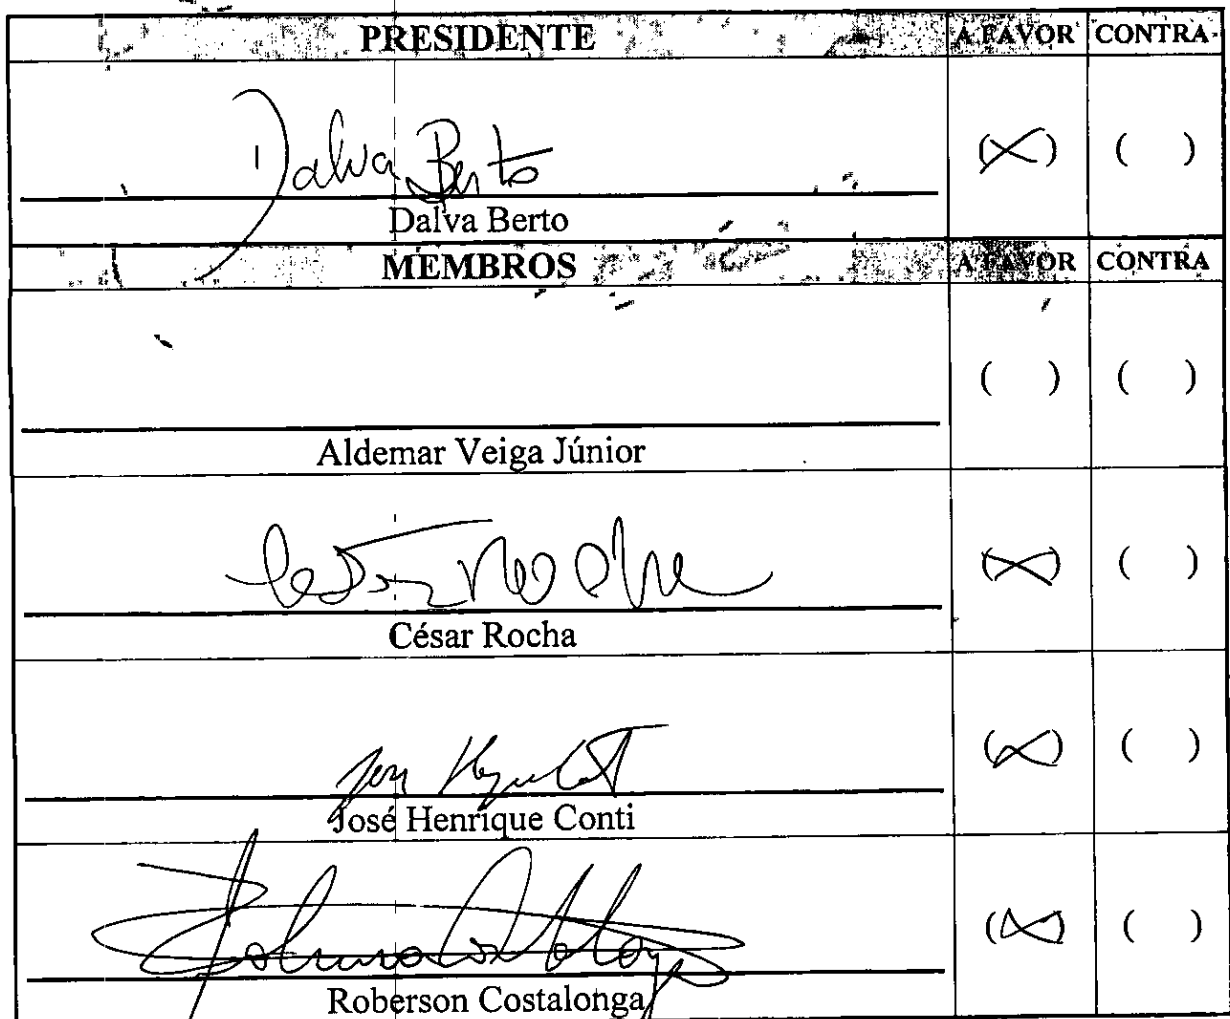 PRESIDENTE A FAVOR CONTRA
Dalva Berto (X) ( )
Dalva Berto
MEMBROS A FAVOR CONTRA
( ) ( )
Aldemar Veiga Júnior
César Rocha (X) ( )
César Rocha
(X) ( )
José Henrique Conti
(X) ( )
Roberson Costalonga